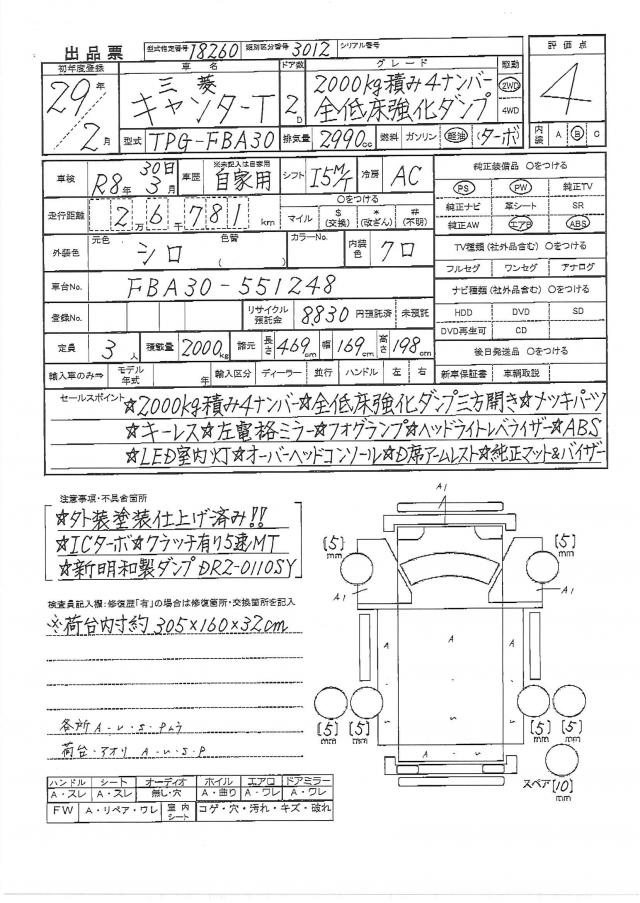 出品票 型式指定番号 18260 類別区分番号 3012 シリアル番号
初年度登録 車名 ドア数 グレード 駆動 評価点
29年 三菱 2D 2000kg積み4ナンバー 2WD 4
2月 キャンターT 全低床強化ダンプ 4WD
型式 TPG-FBA30 排気量 2990cc 燃料 ガソリン 軽油 (ターボ 内装 A B C
車検 R8年 3月 30日 車歴 ※未記入は自家用 自家用 シフト I5M/T 冷房 AC
純正装備品 ○をつける
PS PW 純正TV
走行距離 2万6千781km マイル $(交換) *(改ざん) #(不明) ○をつける
純正ナビ 革シート SR
純正AW エアB ABS
外装色 元色 シロ 色替 ( ) カラーNo. 内装色 クロ
TV種類(社外品含む) ○をつける
フルセグ ワンセグ アナログ
車台No. FBA30-551248
ナビ種類(社外品含む) ○をつける
登録No. リサイクル預託金 8830 円預託済 未預託
HDD DVD SD
DVD再生可 CD
定員 3人 積載量 2000kg 諸元 長さ 469cm 幅 169cm 高さ 198cm
後日発送品 ○をつける
輸入車のみ⇒ モデル年式 年 輸入区分 ディーラー 並行 ハンドル 左 右 新車保証書 車輌取説
セールスポイント
☆2000kg積み4ナンバー☆全低床強化ダンプ三方開き☆メッキパーツ
☆キーレス☆左電格ミラー☆フォグランプ☆ヘッドライトレベライザー☆ABS
☆LED室内灯☆オーバーヘッドコンソール☆D席アームレスト☆純正マット&バイザー
注意事項・不具合箇所
☆外装塗装仕上げ済み!!
☆ICターボ☆クラッチ有り5速MT
☆新明和製ダンプDR2-0110SY
検査員記入欄:修復歴「有」の場合は修復箇所・交換箇所を記入
※荷台内寸約 305×160×32cm
各所 A-U・S・Pムラ
荷台・アオリ A-U・S・P
ハンドル シート オーディオ ホイル エアロ ドアミラー
A・スレ A・スレ 無し・穴 A・曲り A・ワレ A・ワレ
FW A・リペア・ワレ 室内シート コゲ・穴・汚れ・キズ・破れ
A1
[5]mm [5]mm
A1 A1
A A
[5]mm [5]mm [5]mm [5]mm
A
スペア [10]mm